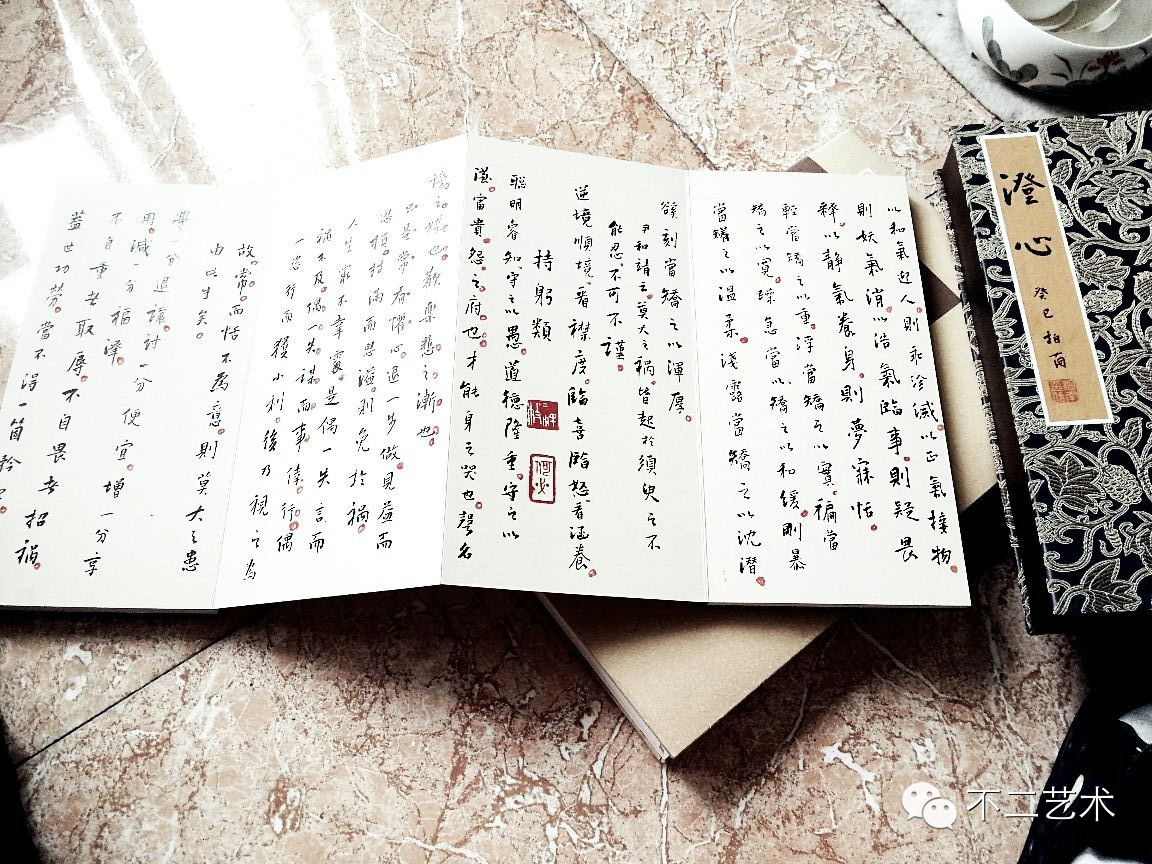 以和氣迎人則乖沴滅以正氣接物
則妖氣消以浩氣臨事則疑畏
釋以靜氣養身則夢寐恬
輕當矯之以重浮當矯之以實褊當
矯之以寬躁急當矯之以和緩剛暴
當矯之以溫柔淺露當矯之以沈潛
谿刻當矯之以渾厚
尹和靖云莫大之禍皆起於須臾之不
能忍不可不謹
逆境順境看襟度臨喜臨怒看涵養
持躬類
聰明睿知守之以愚道德隆重守之以
謙富貴怨之府也才能身之災也聲名
謗之媒也歡樂悲之漸也
只是常有懼心退一步做見益而
思損持滿而思溢則免於禍
人生最不幸處是偶一失言而
禍不及偶一失謀而事倖偶
一恣行而獲小利後乃視之為
故常而恬不為意則莫大之患
由此生矣
學一分退讓討一分便宜增一分享
用減一分福澤
不自重者取辱不自畏者招禍
蓋世功勞當不得一箇矜字
澄心
癸巳柏酉
何必
不二艺术